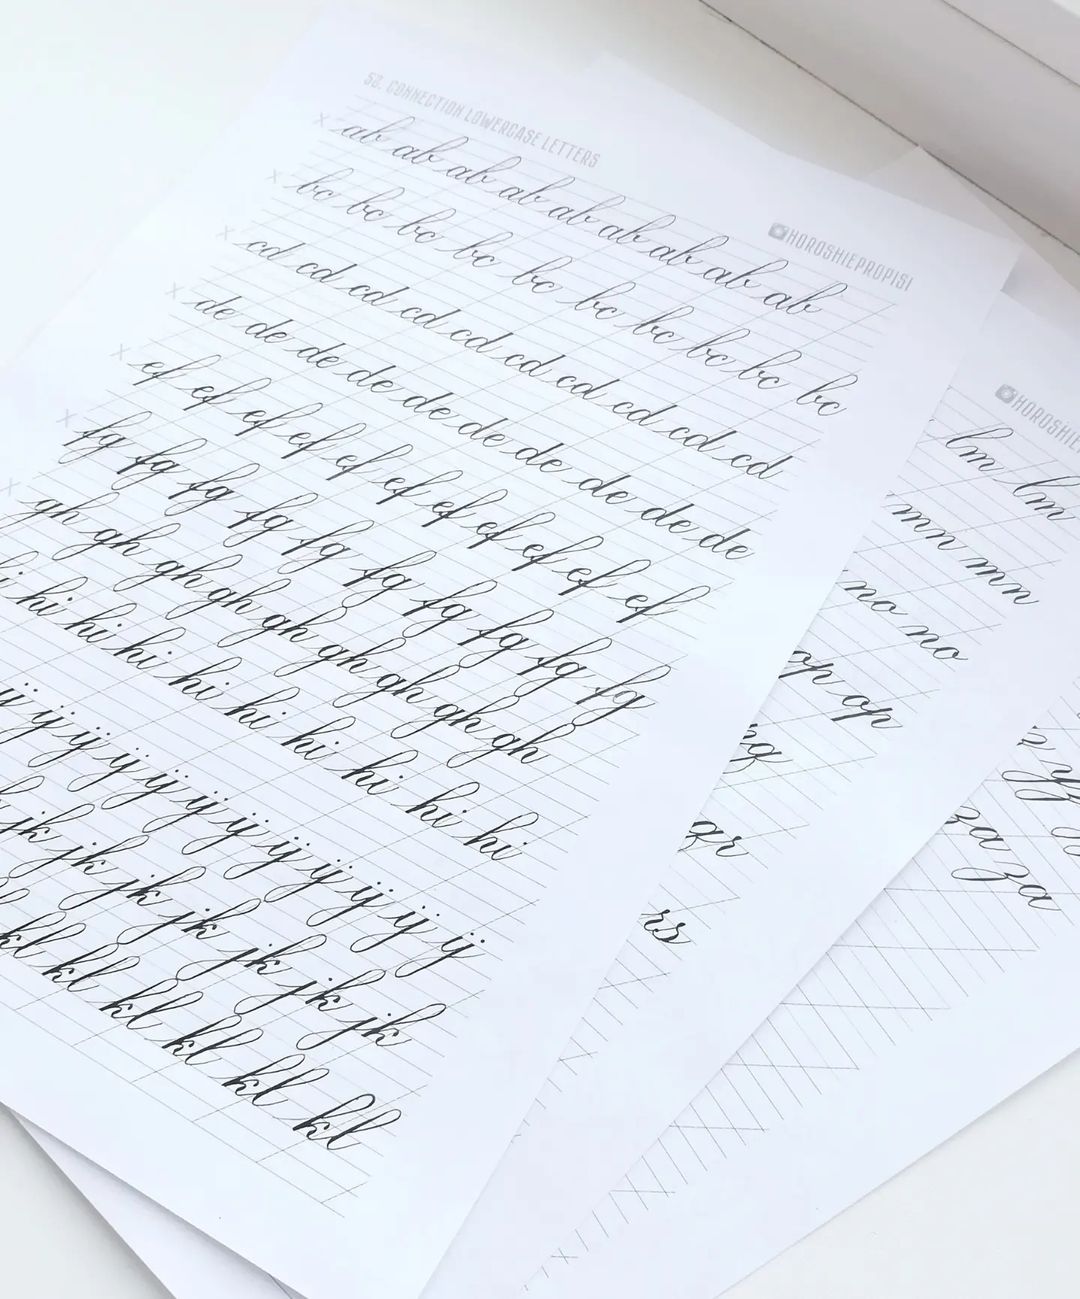 52. CONNECTION LOWERCASE LETTERS
HOROSHIEPROPISI
ab ab ab ab ab ab ab ab ab
bc bc bc bc bc bc bc bc bc bc
cd cd cd cd cd cd cd cd cd cd
de de de de de de de de de de
ef ef ef ef ef ef ef ef ef ef ef
fg fg fg fg fg fg fg fg fg fg
gh gh gh gh gh gh gh gh gh
hi hi hi hi hi hi hi hi hi
ij ij ij ij ij ij ij ij ij ij ij ij
jk jk jk jk jk jk jk
kl kl kl kl kl kl
lm lm
mn mn
no no
op op
qr
rs
za za